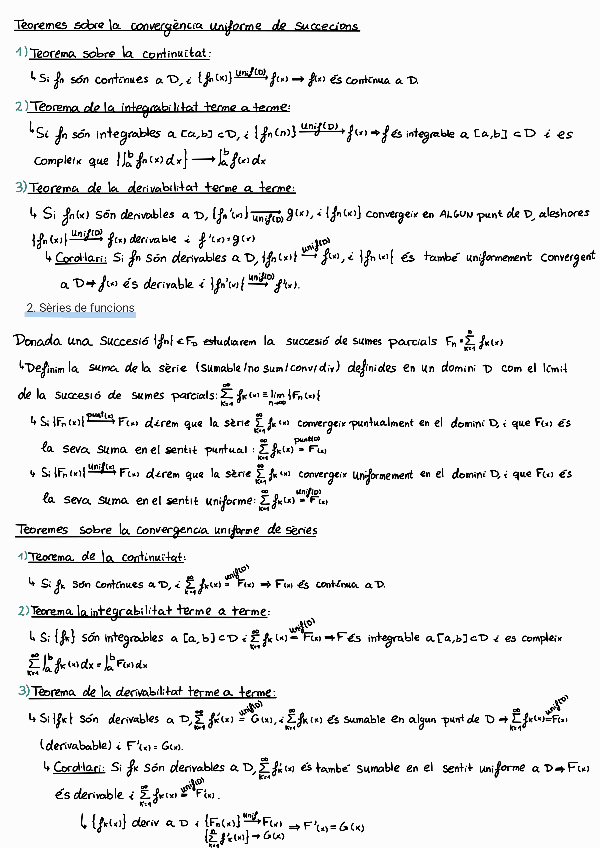 Teoremes sobre la convergència uniforme de successions
1) Teorema sobre la continuïtat:
↳ Si fn són contínues a D, i {fn(x)} —Unif(D)→ f(x) → f(x) és contínua a D.
2) Teorema de la integrabilitat terme a terme:
↳ Si fn són integrables a [a,b] ⊂ D, i {fn(x)} —Unif(D)→ f(x) ⇒ f és integrable a [a,b] ⊂ D i es
compleix que {∫_a^b fn(x)dx} → ∫_a^b f(x)dx
3) Teorema de la derivabilitat terme a terme:
↳ Si fn(x) són derivables a D, {fn'(x)} —Unif(D)→ g(x), i {fn(x)} convergeix en ALGUN punt de D, aleshores
{fn(x)} —Unif(D)→ f(x) derivable i f'(x)=g(x)
↳ Corol·lari: Si fn són derivables a D, {fn(x)} —Unif(D)→ f(x), i {fn(x)} és també uniformement convergent
a D ⇒ f(x) és derivable i {fn'(x)} —Unif(D)→ f'(x).
2. Sèries de funcions
Donada una successió {fn} ∈ Fn estudiarem la successió de sumes parcials Fn = Σ_{k=1}^n fk(x)
↳ Definim la suma de la sèrie (sumable/no sum/conv/div) definides en un domini D com el límit
de la successió de sumes parcials: Σ_{k=1}^∞ fk(x) = lim_{n→∞} {Fn(x)}
↳ Si {Fn(x)} —punt(x)→ F(x) direm que la sèrie Σ_{k=1}^∞ fk(x) convergeix puntualment en el domini D, i que F(x) és
la seva suma en el sentit puntual: Σ_{k=1}^∞ fk(x) =^{punt(D)} F(x)
↳ Si {Fn(x)} —Unif(x)→ F(x) direm que la sèrie Σ_{k=1}^∞ fk(x) convergeix uniformement en el domini D, i que F(x) és
la seva suma en el sentit uniforme: Σ_{k=1}^∞ fk(x) =^{Unif(D)} F(x)
Teoremes sobre la convergencia uniforme de sèries
1) Teorema de la continuïtat:
↳ Si fk són contínues a D, i Σ_{k=1}^∞ fk(x) =^{Unif(D)} F(x) ⇒ F(x) és contínua a D.
2) Teorema la integrabilitat terme a terme:
↳ Si {fk} són integrables a [a,b] ⊂ D i Σ_{k=1}^∞ fk(x) =^{Unif(D)} F(x) ⇒ F és integrable a [a,b] ⊂ D i es compleix
Σ_{k=1}^∞ ∫_a^b fk(x)dx = ∫_a^b F(x)dx
3) Teorema de la derivabilitat terme a terme:
↳ Si {fk} són derivables a D, Σ_{k=1}^∞ fk'(x) =^{Unif(D)} G(x), i Σ_{k=1}^∞ fk(x) és sumable en algun punt de D ⇒ Σ_{k=1}^∞ fk(x) =^{Unif(D)} F(x)
(derivabable) i F'(x) = G(x).
↳ Corol·lari: Si fk són derivables a D, Σ_{k=1}^∞ fk'(x) és també sumable en el sentit uniforme a D ⇒ F(x)
és derivable i Σ_{k=1}^∞ fk(x) =^{Unif(D)} F'(x).
↳ {fk(x)} deriv a D i {Fn(x)} —Unif→ F(x)
{Σ_{k=1}^n f'k(x)} → G(x) ⇒ F'(x) = G(x)